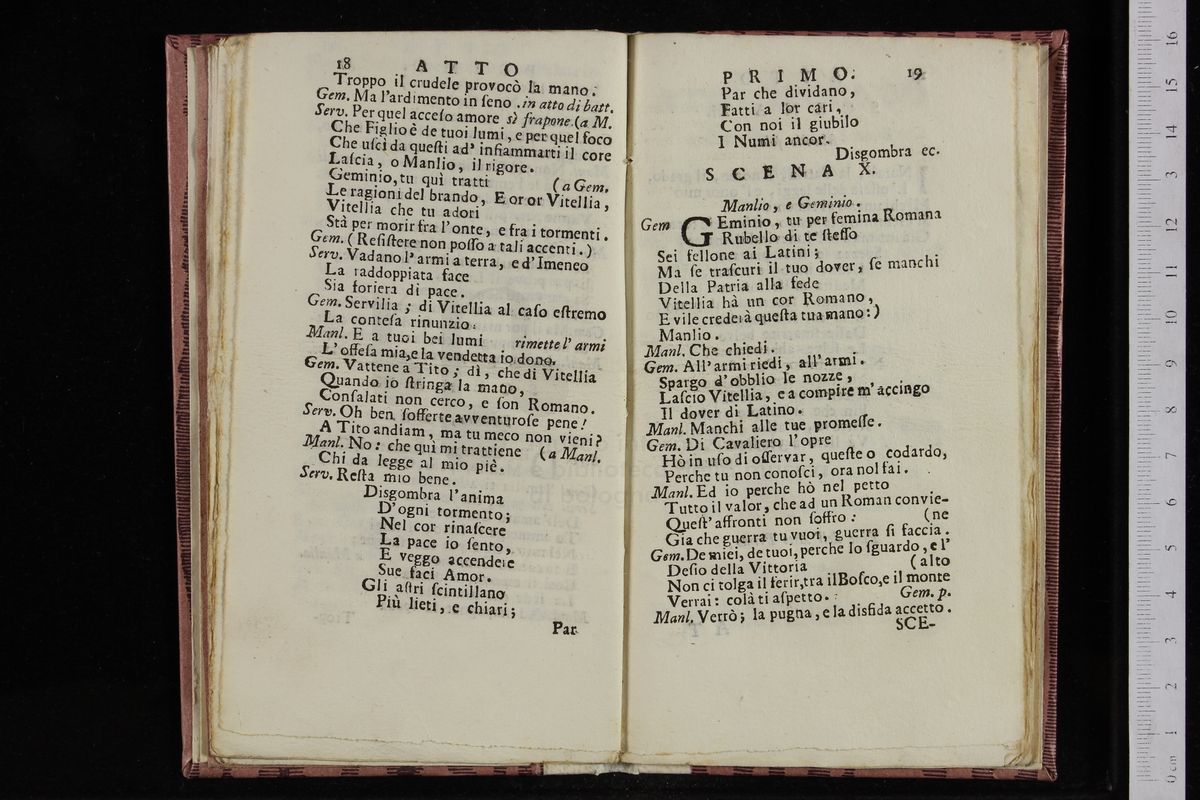 18 ATTO
Troppo il crudele provocò la mano.
Gem. Ma l'ardimento in ſeno . in atto di batt.
Serv. Per quel acceſo amore sì frapone. (a M.
Che Figlio è de tuoi lumi, e per quel foco
Che uſcì da queſti ad' infiammarti il core
Laſcia, o Manlio, il rigore.
Geminio, tu quì tratti (a Gem.
Le ragioni del brando, E or or Vitellia,
Vitellia che tu adori
Stà per morir fra l'onte, e fra i tormenti.
Gem. (Reſiſtere non poſſo a tali accenti.)
Serv. Vadano l'armi a terra, e d'Imeneo
La raddoppiata face
Sia foriera di pace.
Gem. Servilia ; di Vitellia al caſo eſtremo
La conteſa rinunzio:
Manl. E a tuoi bei lumi rimette l' armi
L' offeſa mia, e la vendetta io dono.
Gem. Vattene a Tito; dì, che di Vitellia
Quando io ſtringa la mano,
Conſalati non cerco, e ſon Romano.
Serv. Oh ben ſofferte avventuroſe pene!
A Tito andiam, ma tu meco non vieni?
Manl. No: che quì mi trattiene (a Manl.
Chi da legge al mio piè.
Serv. Reſta mio bene.
Diſgombra l'anima
D'ogni tormento;
Nel cor rinaſcere
La pace io ſento,
E veggo accendere
Sue faci Amor.
Gli aſtri ſcintillano
Più lieti, e chiari;
Par
PRIMO. 19
Par che dividano,
Fatti a lor cari,
Con noi il giubilo
I Numi ancor.
Diſgombra ec.
SCENA X.
Manlio, e Geminio.
Gem GEminio, tu per femina Romana
Rubello di te ſteſſo
Sei fellone ai Latini;
Ma ſe traſcuri il tuo dover, ſe manchi
Della Patria alla fede
Vitellia hà un cor Romano,
E vile crederà queſta tua mano:)
Manlio.
Manl. Che chiedi.
Gem. All'armi riedi, all'armi.
Spargo d'obblio le nozze,
Laſcio Vitellia, e a compire m' accingo
Il dover di Latino.
Manl. Manchi alle tue promeſſe.
Gem. Di Cavaliero l'opre
Hò in uſo di oſſervar, queſte o codardo,
Perche tu non conoſci, ora nol fai.
Manl. Ed io perche hò nel petto
Tutto il valor, che ad un Roman convie-
Queſt' affronti non ſoffro: (ne
Gia che guerra tu vuoi, guerra ſi faccia.
Gem. De miei, de tuoi, perche lo ſguardo, e l'
Deſio della Vittoria (alto
Non ci tolga il ferir, tra il Boſco, e il monte
Verrai: colà ti aſpetto. Gem. p.
Manl. Verrò; la pugna, e la disfida accetto.
SCE-